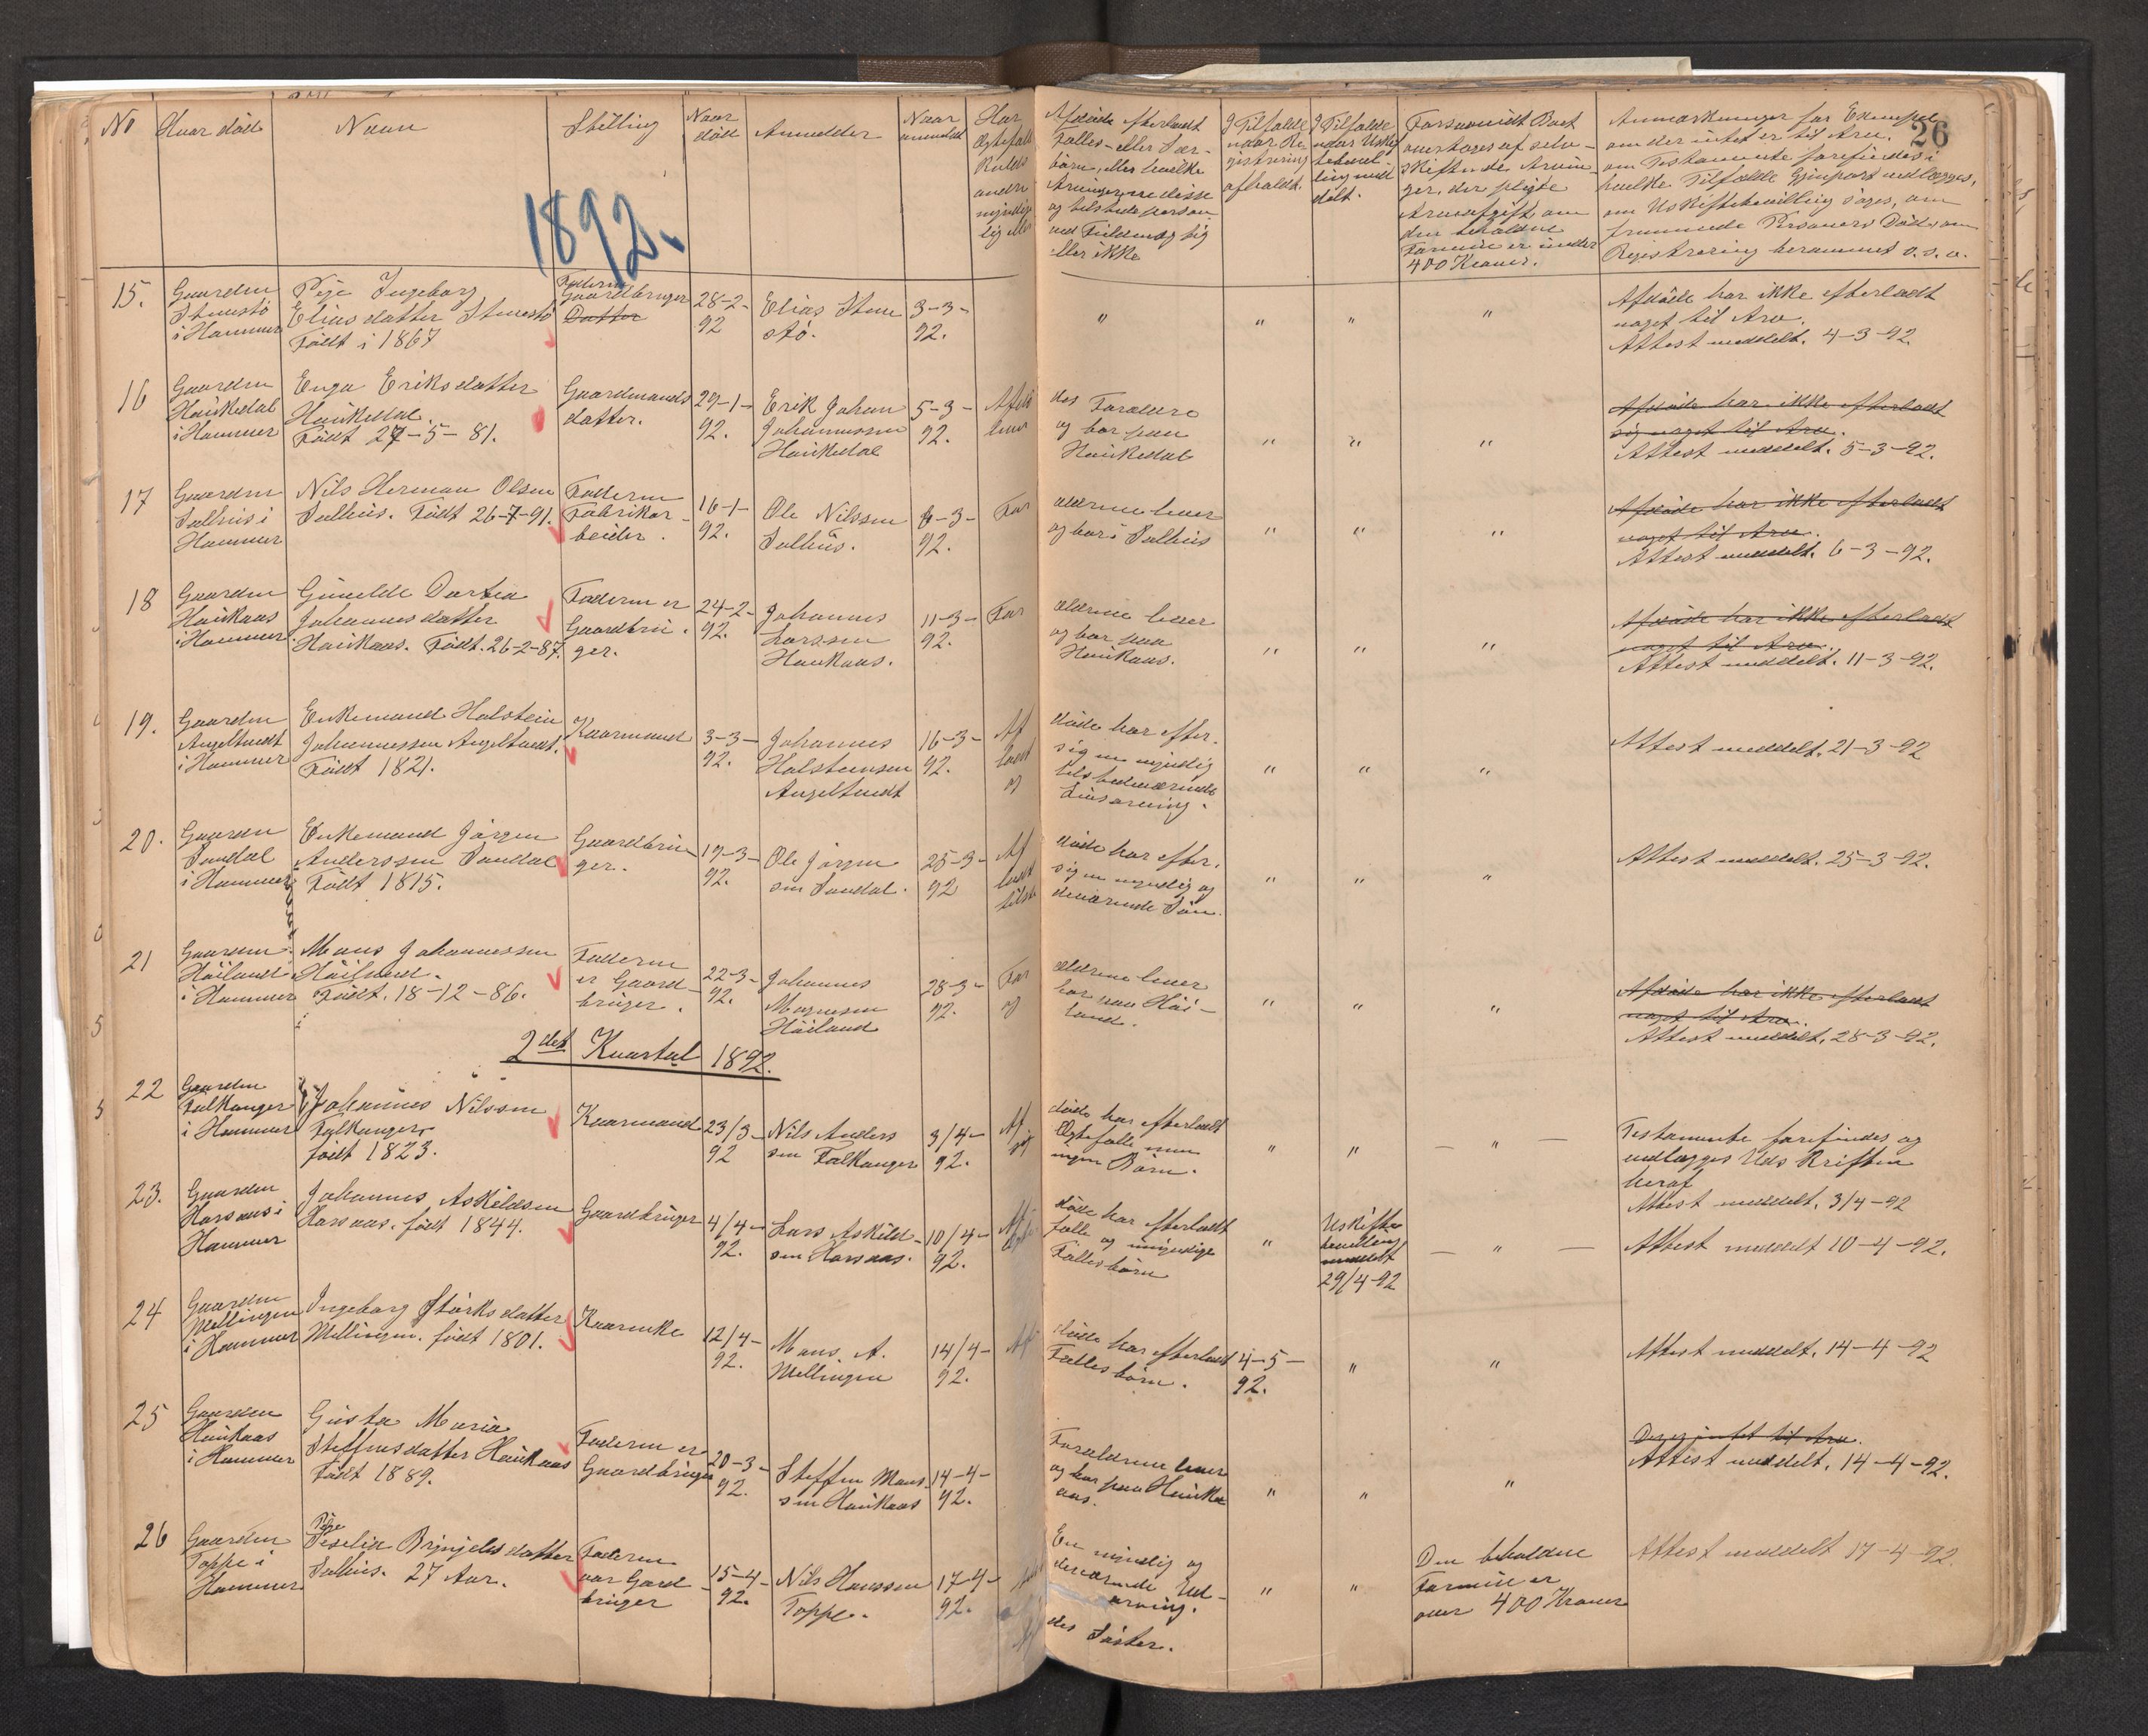 No
Hvor død
Navn
Stilling
Naar
død
Anmelder
Naar
anmeldt
Har
Afdøde efterladt
Fælles- eller Sær-
børn, eller hvilke
Arvinger, ere disse
og tilstede
eller ikke
I Tilfælde
naar Re-
gistrering
afholdt.
I Tilfælde
naar Uskif-
tebevil-
ling med
delt.
Forsaavidt Boet
overtages af selv-
skiftende Arvin-
ger, der pligte
Arveafgift, om
den beholdne
Formue er under
400 Kroner.
Anmærkninger for Exempel
om der intet er til Arv.
om Testamente forefindes i
hvilke Tilfælde Gjenpart vedlægges,
om Uskiftebevilling søges, om
fremmede Personers Død, om
Registrering berammet o.s.v.
26
1892.
15.
Gaarden
i Hammer
Pige Ingeborg
Eliasdatter
Født i 1867
Faderen
Gaardbruger
Datter
28-2-
92
Elias
3-3-
92.
" " " "
Afdøde har ikke efterladt
noget til Arv.
Attest meddelt. 4-3-92
16
Gaarden
Haukedal
i Hammer
Eriksdatter
Haukedal.
Født 27-5-81.
Gaardmands
datter.
29-1-
92.
Erik Johan
Johannessen
Haukedal
5-3-
92.
des Forældre
og bor paa
Haukedal
" " "
Afdøde har ikke efterladt
sig noget til Arv.
Attest meddelt. 5-3-92.
17
Gaarden
Salhus i
Hammer
Nils Herman Olsen
Salhus. Født 26-7-91.
Faderen
Fabrikar-
beider.
16-1-
92.
Ole Nilssen
Salhus.
6-3-
92.
For
ældrene lever
og bor i Salhus
" " "
Afdøde har ikke efterladt
noget til Arv.
Attest meddelt. 6-3-92.
18
Gaarden
Haukaas
i Hammer
Gunelde Dortea
Johannesdatter
Haukaas. Født. 26-2-87.
Faderen er
Gaardbru-
ger.
24-2-
92.
Johannes
Larssen
Haukaas.
11-3-
92.
For
ældrene lever
og bor paa
Haukaas.
" " "
Afdøde har ikke efterladt
noget til Arv.
Attest meddelt. 11-3-92.
19.
Gaarden
Angeltvedt
i Hammer
Enkemand Halstein
Johannessen Angeltvedt.
Født 1821.
Kaarmand
3-3-
92.
Johannes
Halsteinsen
Angeltvedt
16-3-
92.
Af
ladt
og
døde har efter-
sig en myndig
tilstedeværende
Livsarving.
" " "
Attest meddelt. 21-3-92
20.
Gaarden
Sandal
i Hammer
Enkemand Jørgen
Anderssen Sandal
Født 1815.
Gaardbru-
ger.
19-3-
92.
Ole Jørgen-
sen Sandal.
25-3-
92
Af
ladt
tilste
døde har efter-
sig en myndig og
deværende Søn.
" " "
Attest meddelt. 25-3-92.
21
Gaarden
Høiland
i Hammer
Mons Johannessen
Høiland.
Født. 18-12-86.
Faderen
er Gaard-
bruger.
22-3-
92.
Johannes
Høiland
28-3-
92.
For
og
ældrene lever
bor paa Høi-
land.
" " "
Afdøde har ikke efterladt
noget til Arv.
Attest meddelt, 28-3-92.
2det Kvartal 1892.
22
Gaarden
Falkanger
i Hammer
Johannes Nilssen
Falkanger
født 1823.
Kaarmand
23/3-
92
Nils Anders
sen Falkanger
3/4-
92.
Af
døde har efterladt
Ægtefælle men
ingen Børn.
" " — " —
Testamente forefindes og
vedlægges Udskriften
heraf
Attest meddelt. 3/4-92
23.
Gaarden
Horsaas i
Hammer
Johannes Askildsen
Horsaas. født 1844.
Gaardbruger
4/4-
92.
Lars Askild-
sen Horsaas.
10/4-
92.
Af
døde har efterladt
fælle og umyndige
Fællesbørn
"
Uskifte
bevilling
meddelt
29/4-92
— " —
Attest meddelt 10-4-92.
24
Gaarden
Mellingen
i Hammer
Ingeborg Størksdatter
Mellingen. født 1801.
Kaarenke
12/4-
92.
Mons A.
Mellingen
14/4-
92.
Af
døde har efterladt
Fællesbørn.
4-5-
92.
" "
Attest meddelt. 14-4-92
25
Gaarden
Haukaas
i Hammer
Gusta Maria
Steffensdatter Haukaas
Født 1889.
Faderen er
Gaardbruger
20-3-
92.
Steffen Mons-
sen Haukaas
14-4-
92.
Forældrene lever
og bor paa Hauka
aas.
" " "
Der er intet til Arv.
Attest meddelt. 14-4-92.
26
Gaarden
Toppe i
Hammer
Pige
Brynjelsdatter
Salhus. 27 Aar.
Faderen
var Gard-
bruger
15-4-
92.
Nils Hanssen
Toppe.
17-4-
92.
En myndig og
deværende Ud-
arving.
des Søster.
" "
Den beholdne
Formue er
over 400 Kroner
Attest meddelt 17-4-92.